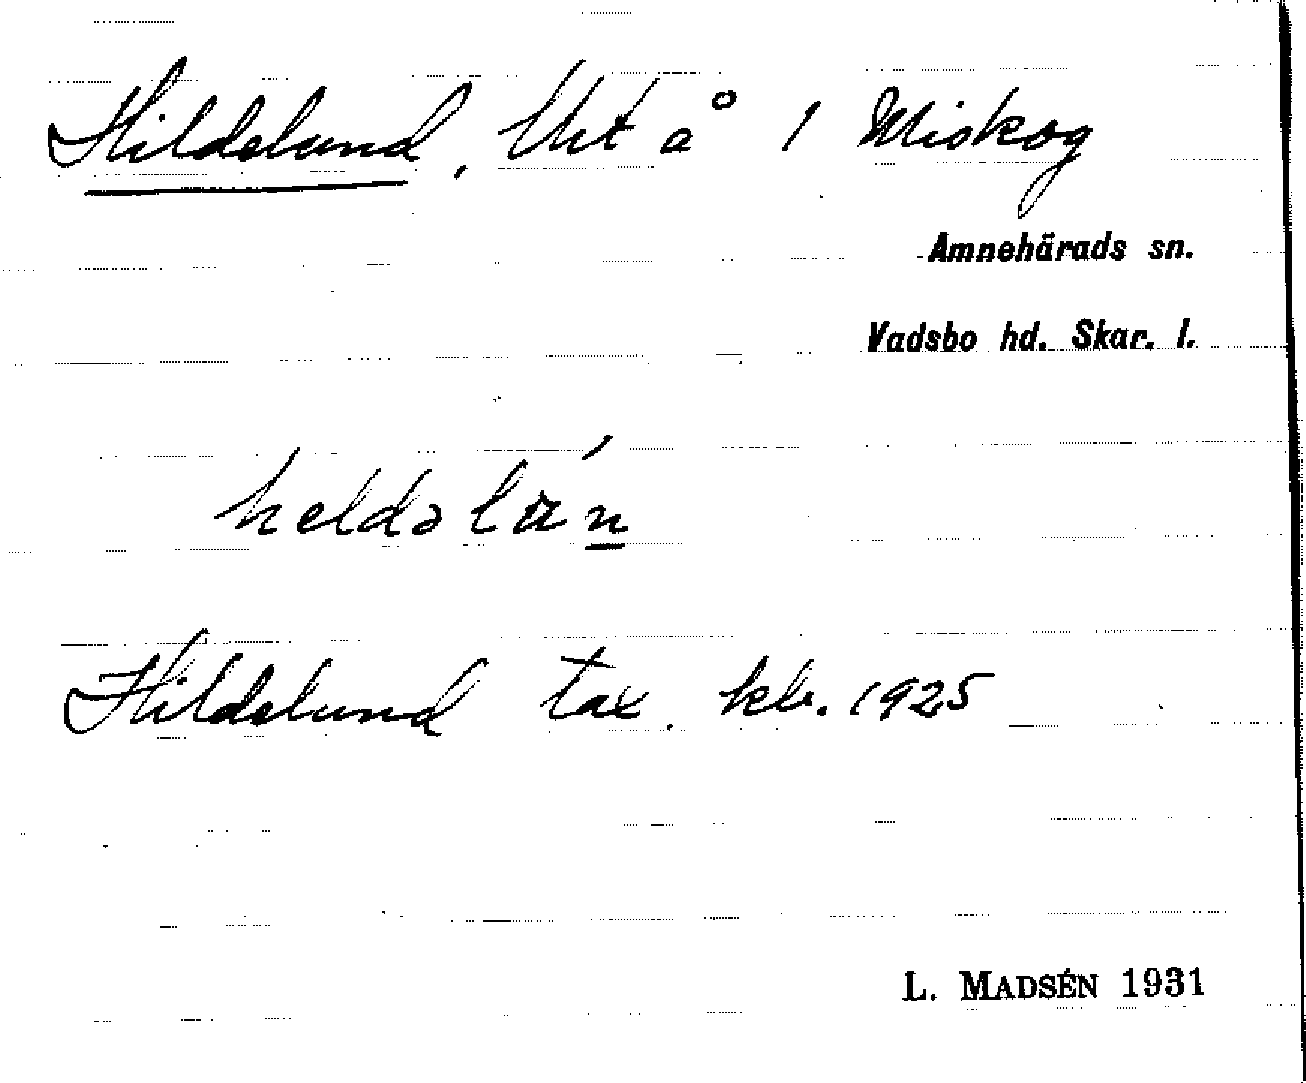 Hildelund, Utå 1 Miskog
Amnehärads sn.
Vadsbo hd. Skar. l.
heldəlán
Hildelund tax. kb. 1925
L. MADSÉN 1931